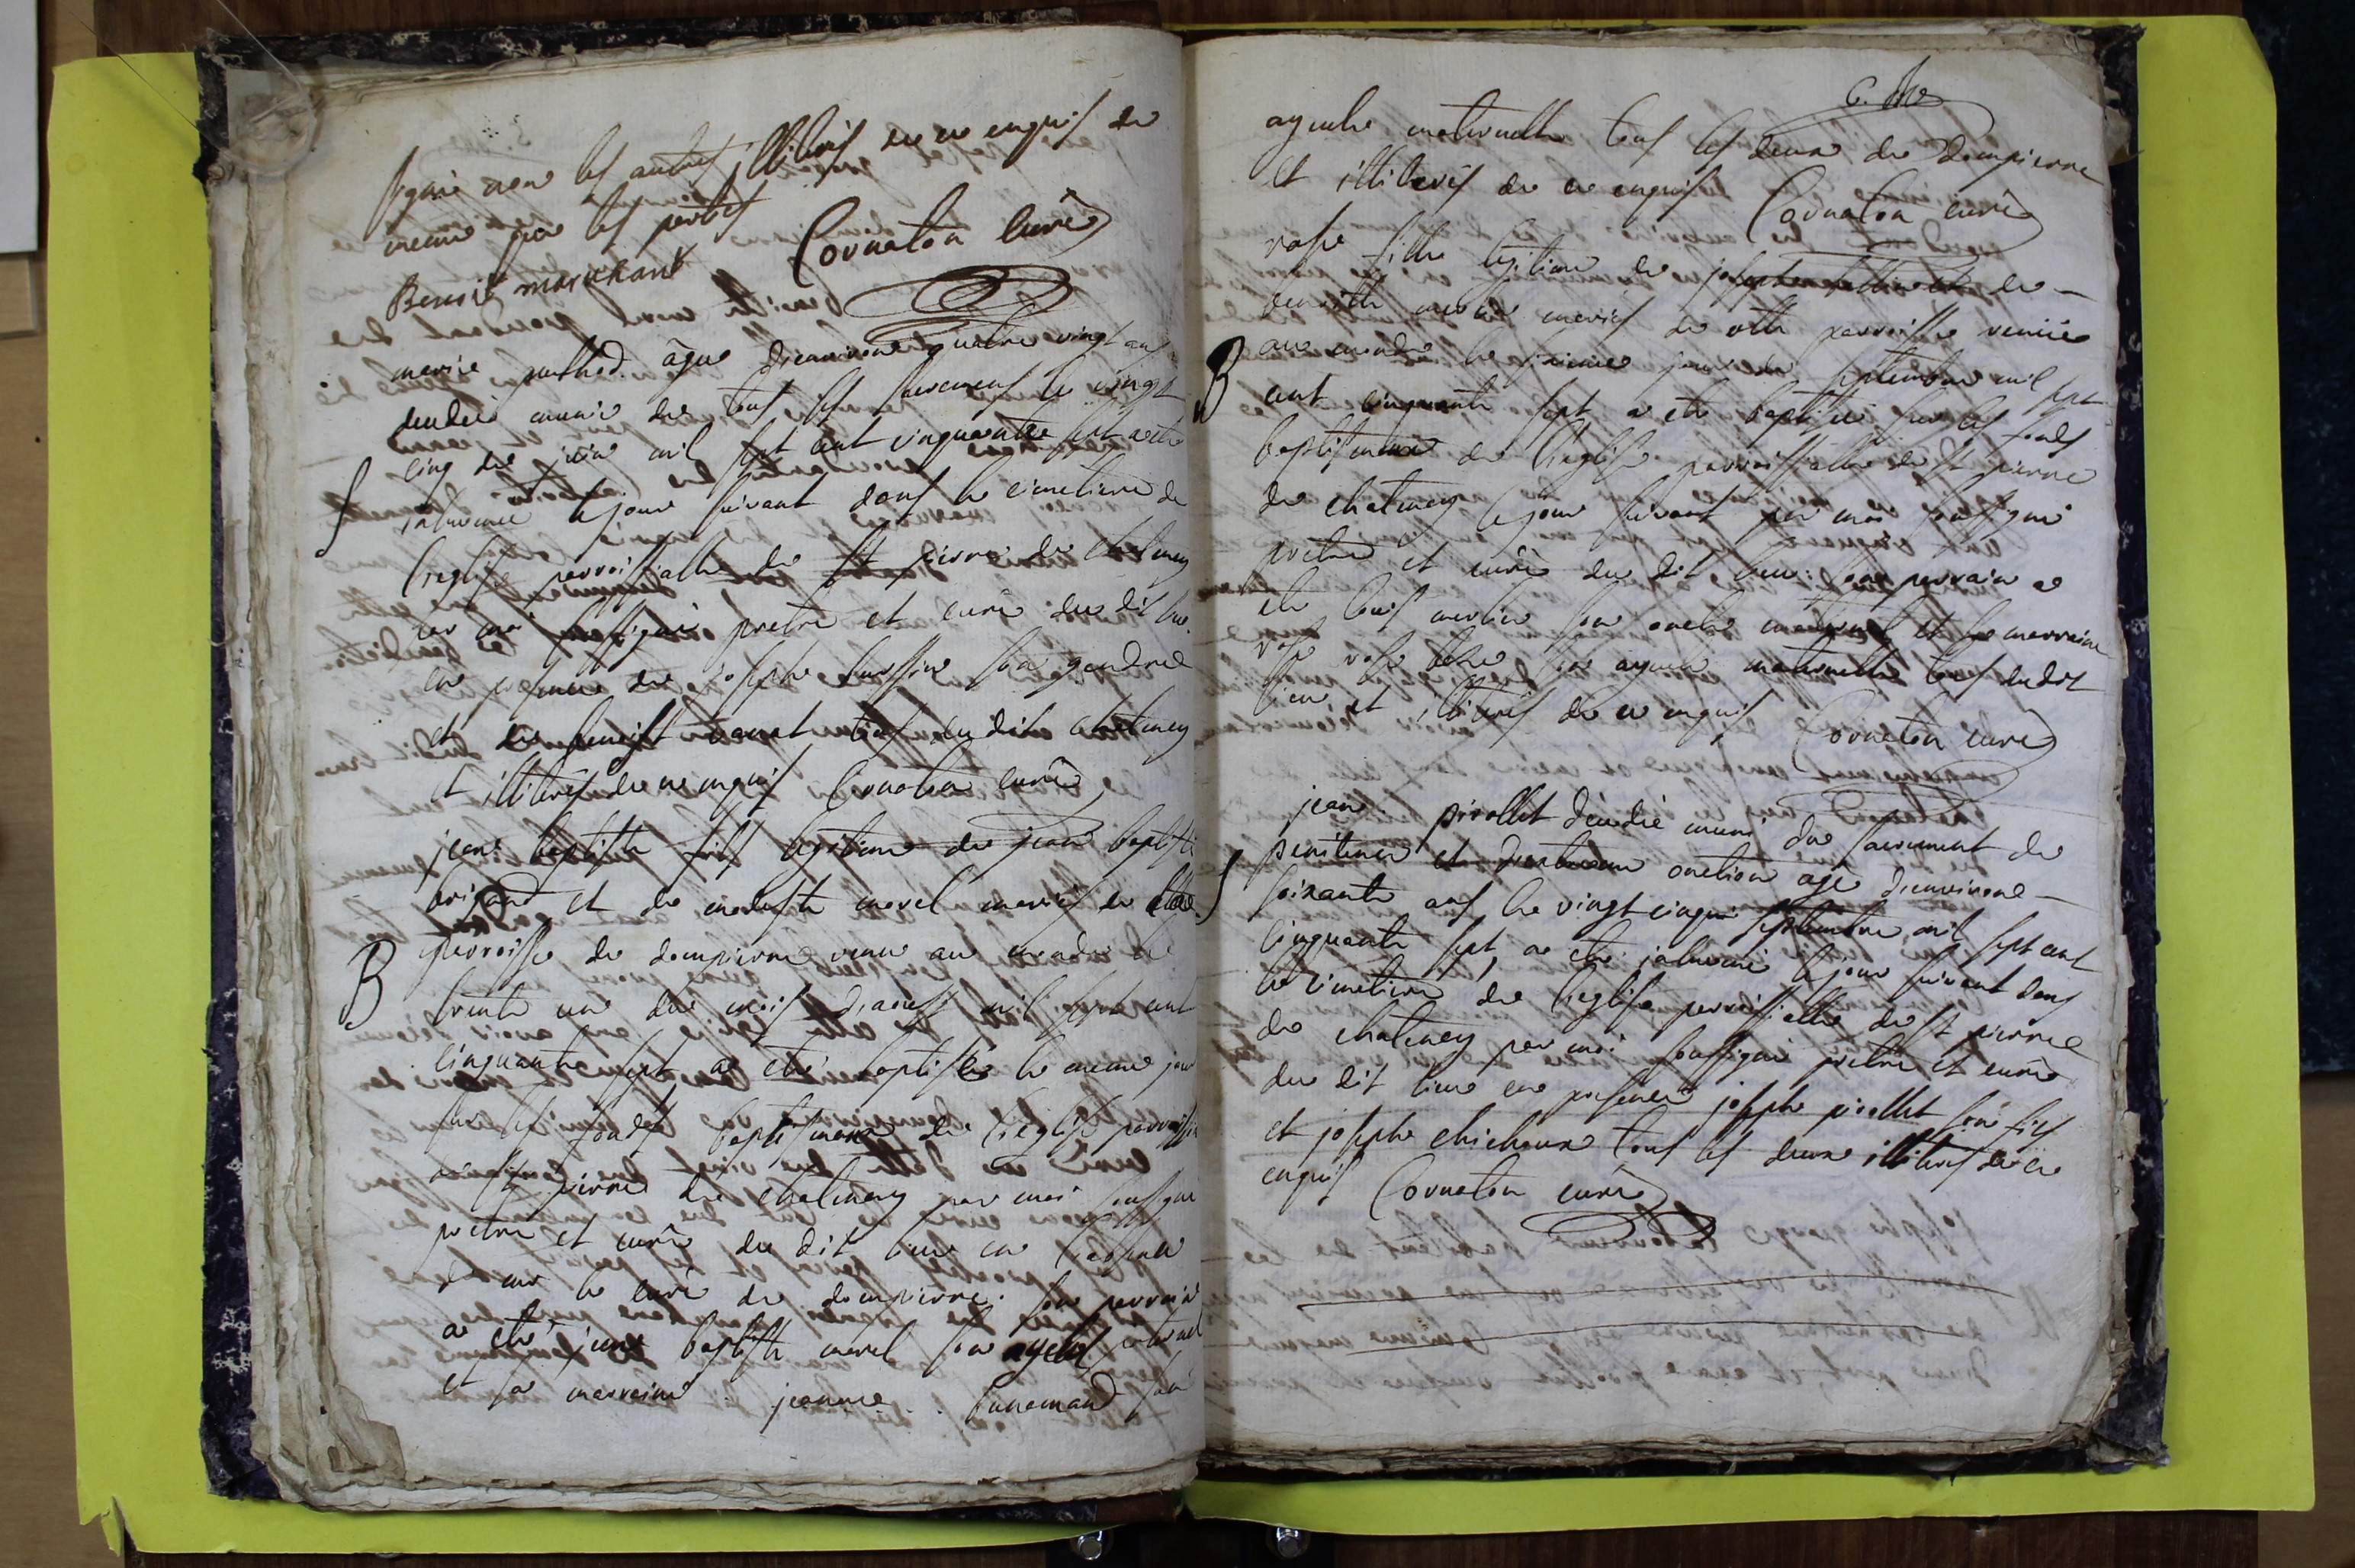 signé non les autres illiterés de ce enquis de
meme que les parties
Benoit marchant Cornaton curé
marie méthod âgée d'environe quatre vingt ans
deudée munie de tous les sacrement le vingt
S cinq de juin mil sept cent cinquante sept a ete
inhumée le jour suivant dans le cimetiere de
l'eglise parroissialle de st pierre de chatenay
par moi soussigné pretre et curé du dit lieu
en presence de joseph son gendre
et de benoist tous du dit chatenay
et illiterés de ce enquis Cornaton curé
jean baptiste fils legitime de jean baptiste
brigand et de modeste morel mariés en
B parroisse de dompierre venu au monde le
trente un du mois d'aoust mil sept cent
cinquante sept a eté baptisé le meme jour
sur les fonds baptismaux de l'eglise parroissia
de st pierre de chatenay par moi soussigné
pretre et curé du dit lieu en l'absence
de mr le curé de dompierre. son parrain
a eté jean baptiste morel son ayeul paternel
et sa marraine jeanne bunemand son
6. me
ayeule maternelle tous les deux de dompierre
et illiterés de ce enquis Cornaton curé
rose fille legitime de joseph de
benoitte merlin mariés de cette parroisse venuë
B au monde le jour de septembre mil sept
cent cinquante sept a ete baptisée sur les fonds
baptismaux de l'eglise parroissialle de st pierre
de chatenay le jour suivant par moi soussigné
pretre et curé du dit lieu: son parrain a
ete louis merlin son oncle maternel et sa marraine
rose son ayeule maternelle tous du dit
lieu et illiterés de ce enquis Cornaton curé
jean pirollet déudié muni du sacrement de
S penitence et d'extreme onction agé d'environe
soixante ans le vingt cinque septembre mil sept cent
cinquante sept a ete inhumé le jour suivant dans
le cimetiere de l'eglise parroissialle de st pierre
de chatenay par moi soussigné pretre et curé
du dit lieu en presence joseph pirollet son fils
et joseph chichoux tous les deux illiterés de ce
enquis Cornaton curé